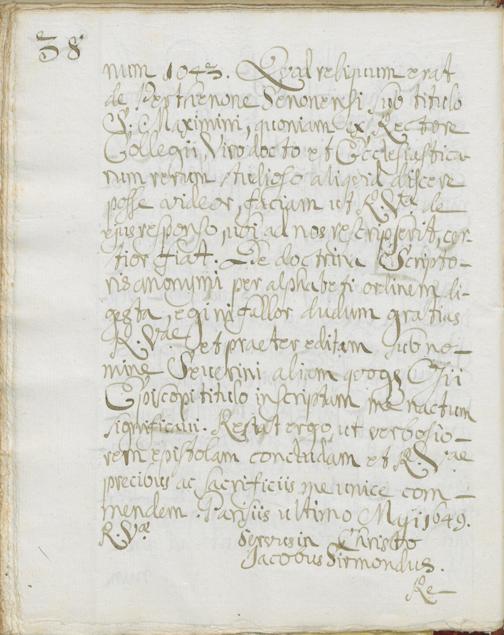 38
num 1043. Quod reliquum erat
de Senonensi sub titulo
S. Maximini, quoniam ex Rectore
Collegii, Viro docto et Ecclesiastica
rum rerum studioso aliquid discere
posse videor, faciam ut R. Vra de
ejus responso, ubi ad nos rescripserit, cer-
tior fiat. De doctrina Scripto-
ris anonymi per alphabeti ordinem di-
gesta, egi ni fallor dudum gratias
R. Vae et praeter editam sub no-
mine Severini aliam quoque
Episcopi titulo inscriptam me nactum
significavi. Restat ergo ut verbosio-
rem epistolam concludam et R. Vae
precibus ac sacrificiis me unice com-
mendem. Parisiis ultimo Maji 1649.
R. Vae
Servus in Christo
Jacobus Sirmondus.
Re-